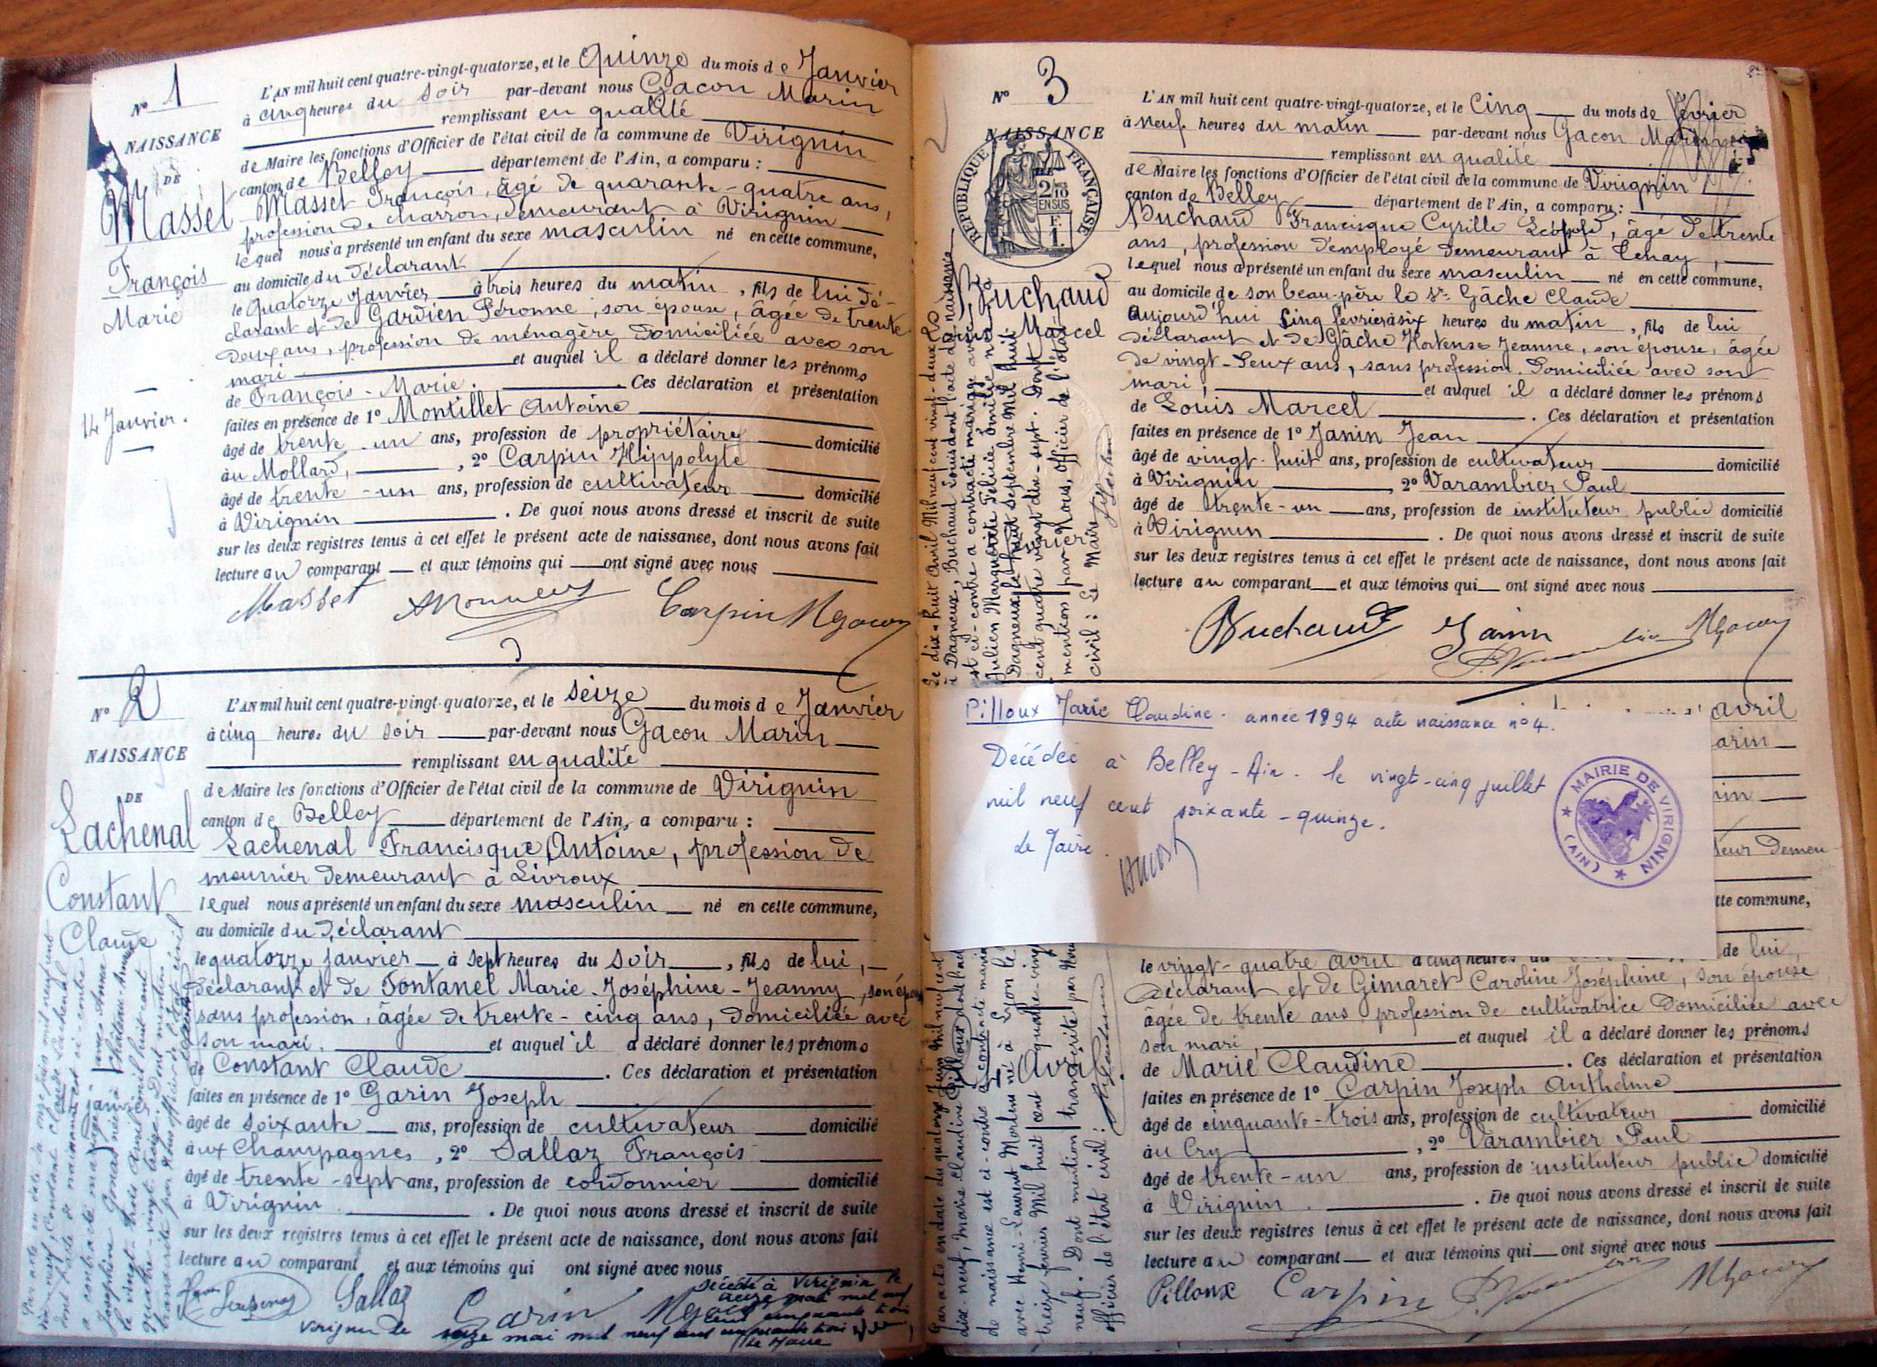 N° 1
NAISSANCE
DE
Masset
François
Marie
14 Janvier.
L'AN mil huit cent quatre-vingt-quatorze, et le Quinze du mois de Janvier
à cinq heures du soir par-devant nous Gacon Marin
remplissant en qualité
de Maire les fonctions d'Officier de l'état civil de la commune de Virignin
canton de Belley département de l'Ain, a comparu :
Masset François, âgé de quarante-quatre ans,
profession de charron, demeurant à Virignin
lequel nous a présenté un enfant du sexe masculin né en cette commune,
au domicile du déclarant
le Quatorze Janvier à trois heures du matin, fils de lui dé-
clarant et de Gardien Péronne, son épouse, âgée de trente
deux ans, profession de ménagère domiciliée avec son
mari et auquel il a déclaré donner les prénoms
de François-Marie. Ces déclaration et présentation
faites en présence de 1° Montillet Antoine
âgé de trente-un ans, profession de propriétaire domicilié
au Mollard, , 2° Carpin Hippolyte
âgé de trente-un ans, profession de cultivateur domicilié
à Virignin . De quoi nous avons dressé et inscrit de suite
sur les deux registres tenus à cet effet le présent acte de naissance, dont nous avons fait
lecture au comparant et aux témoins qui ont signé avec nous
Masset Carpin MGacon
N° 2
NAISSANCE
DE
Lachenal
Constant
Claude
L'AN mil huit cent quatre-vingt-quatorze, et le seize du mois de Janvier
à cinq heures du soir par-devant nous Gacon Marin
remplissant en qualité
de Maire les fonctions d'Officier de l'état civil de la commune de Virignin
canton de Belley département de l'Ain, a comparu :
Lachenal Francisque Antoine, profession de
meunier demeurant à Livroux
lequel nous a présenté un enfant du sexe masculin né en cette commune,
au domicile du déclarant
le quatorze janvier à sept heures du soir, fils de lui,
déclarant et de Fontanel Marie-Joséphine-Jeanny, son épouse
sans profession, âgée de trente-cinq ans, domiciliée avec
son mari. et auquel il a déclaré donner les prénoms
de Constant Claude . Ces déclaration et présentation
faites en présence de 1° Garin Joseph
âgé de soixante ans, profession de cultivateur domicilié
aux Champagnes, 2° Sallaz François
âgé de trente-sept ans, profession de cordonnier domicilié
à Virignin . De quoi nous avons dressé et inscrit de suite
sur les deux registres tenus à cet effet le présent acte de naissance, dont nous avons fait
lecture au comparant et aux témoins qui ont signé avec nous
Sallaz Garin MGacon
Décédé à Virignin le
seize mai mil neuf cent cinquante trois
Le Maire
N° 3
NAISSANCE
RÉPUBLIQUE FRANÇAISE
2/10 EN SUS
Buchaud
Louis Marcel
Le dix-huit Avril Mil neuf cent vingt-deux
à Dagneux, Buchaud Louis dont l'acte de naissance
est ci-contre a contracté mariage avec
Julien Marguerite Félicie Émilie née à
Dagneux le huit septembre mil huit
cent quatre vingt dix-sept. Dont
mention par Nous, officier de l'état
civil : Le Maire
L'AN mil huit cent quatre-vingt-quatorze, et le Cinq du mois de février
à neuf heures du matin par-devant nous Gacon Marin
remplissant en qualité
de Maire les fonctions d'Officier de l'état civil de la commune de Virignin
canton de Belley département de l'Ain, a comparu :
Buchaud Francisque Cyrille Léopold, âgé de trente
ans, profession d'employé demeurant à Tenay,
lequel nous a présenté un enfant du sexe masculin né en cette commune,
au domicile de son beau-père le Sr Gâche Claude
aujourd'hui cinq février à six heures du matin, fils de lui
déclarant et de Gâche Hortense Jeanne, son épouse, âgée
de vingt-deux ans, sans profession. Domiciliée avec son
mari, et auquel il a déclaré donner les prénoms
de Louis Marcel . Ces déclaration et présentation
faites en présence de 1° Janin Jean
âgé de vingt-huit ans, profession de cultivateur domicilié
à Virignin , 2° Varambier Paul
âgé de trente-un ans, profession de instituteur public domicilié
à Virignin . De quoi nous avons dressé et inscrit de suite
sur les deux registres tenus à cet effet le présent acte de naissance, dont nous avons fait
lecture au comparant et aux témoins qui ont signé avec nous
Buchaud Janin P. Varambier MGacon
Pilloux Marie Claudine. année 1894 acte naissance n° 4.
Décédée à Belley-Ain. le vingt-cinq juillet
mil neuf cent soixante-quinze.
Le Maire.
MAIRIE DE VIRIGNIN
(AIN)
avril
arin
teur demeu-
tte commune,
de lui,
le vingt-quatre avril à cinq heures du
déclarant et de Gimaret Caroline Joséphine, son épouse
âgée de trente ans, profession de cultivatrice domiciliée avec
son mari, et auquel il a déclaré donner les prénoms
de Marie Claudine . Ces déclaration et présentation
faites en présence de 1° Carpin Joseph Anthelme
âgé de cinquante-trois ans, profession de cultivateur domicilié
au Cry , 2° Varambier Paul
âgé de trente-un ans, profession de instituteur public domicilié
à Virignin . De quoi nous avons dressé et inscrit de suite
sur les deux registres tenus à cet effet le présent acte de naissance, dont nous avons fait
lecture au comparant et aux témoins qui ont signé avec nous
Pilloux Carpin P. Varambier MGacon